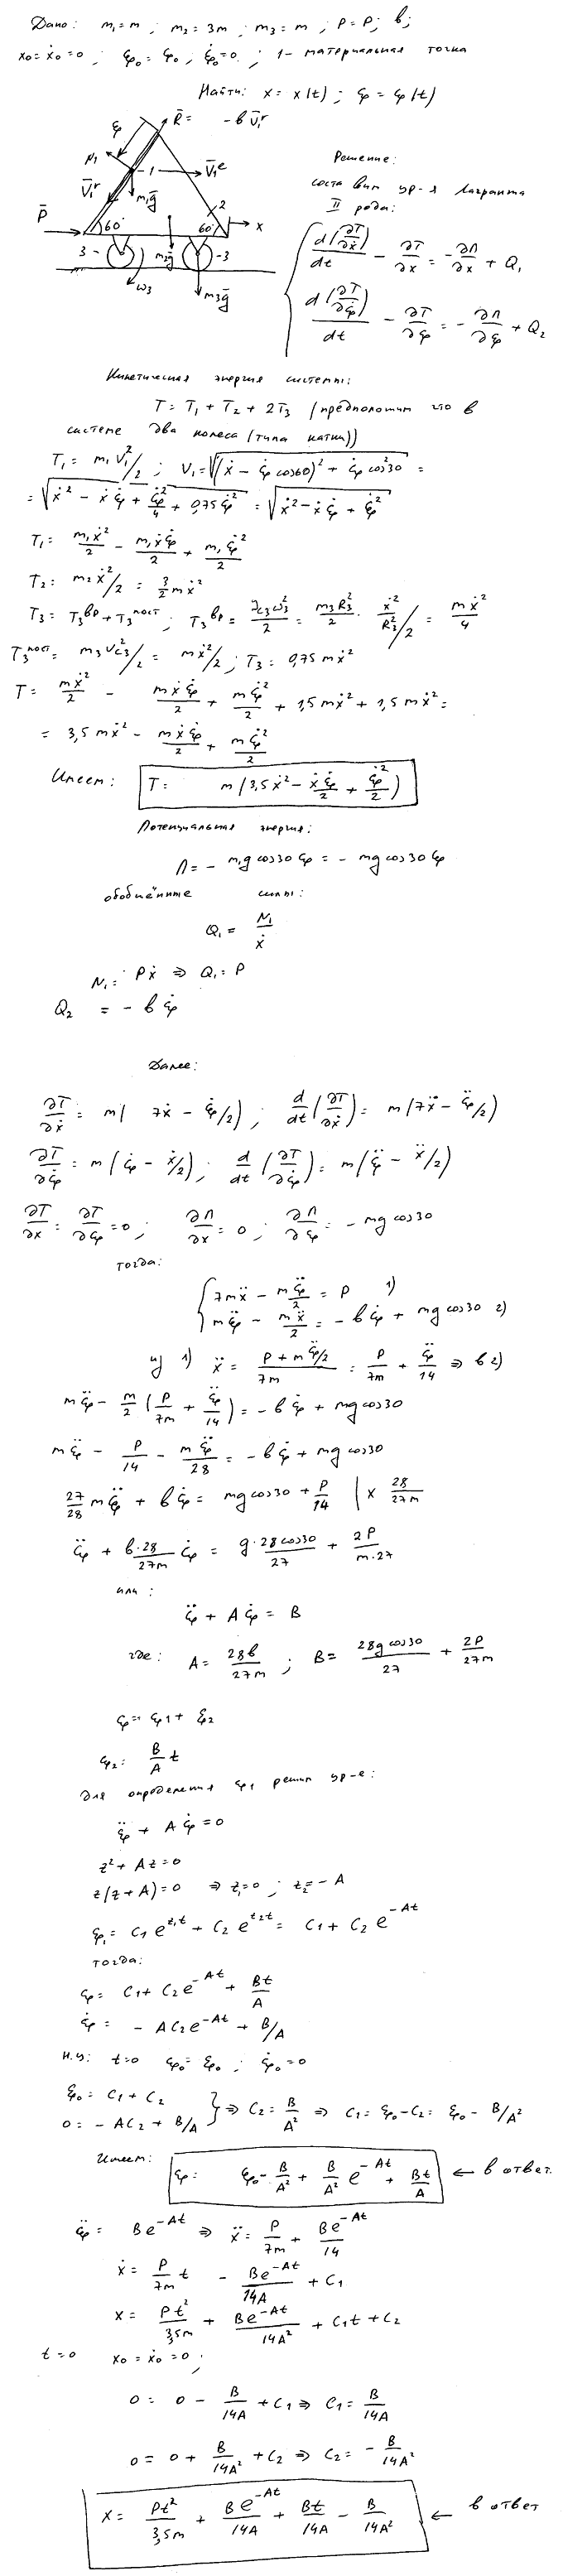 Дано: m₁=m; m₂=3m; m₃=m; P=P; b;
x₀=ẋ₀=0; φ₀=φ₀; φ̇₀=0; 1- материальная точка
Найти: x=x(t); φ=φ(t)
φ R̄= -bV̄₁ʳ
N₁ 1 V̄₁ᵉ
V̄₁ʳ m₁ḡ
P̄ 60° 60° 2 x
3- m₂ḡ -3
ω₃ m₃ḡ
Решение:
составим ур-я Лагранжа
II рода:
d(∂T/∂ẋ)/dt - ∂T/∂x = -∂Π/∂x + Q₁
d(∂T/∂φ̇)/dt - ∂T/∂φ = -∂Π/∂φ + Q₂
Кинетическая энергия системы:
T=T₁+T₂+2T₃ (предположим что в
системе два колеса (типа катки))
T₁= m₁V₁²/2; V₁=√((ẋ-φ̇cos60)²+φ̇cos²30 =
=√(ẋ²-ẋφ̇+φ̇²/4+0,75φ̇²) = √(ẋ²-ẋφ̇+φ̇²)
T₁= m₁ẋ²/2 - m₁ẋφ̇/2 + m₁φ̇²/2
T₂= m₂ẋ²/2 = 3/2 mẋ²
T₃= T₃ᵇᵖ+T₃ᵖᵒˢᵗ; T₃ᵇᵖ= Jc₃ω₃²/2 = m₃R₃²/2 · ẋ²/R₃²/2 = mẋ²/4
T₃ᵖᵒˢᵗ= m₃Vc₃²/2 = mẋ²/2; T₃= 0,75mẋ²
T= mẋ²/2 - mẋφ̇/2 + mφ̇²/2 + 1,5mẋ² + 1,5mẋ²=
= 3,5mẋ² - mẋφ̇/2 + mφ̇²/2
Имеем: T= m(3,5ẋ² - ẋφ̇/2 + φ̇²/2)
Потенциальная энергия:
Π= - m₁g cos30φ = - mg cos30φ
обобщённые силы:
Q₁= N₁/ẋ
N₁= Pẋ ⇒ Q₁=P
Q₂ = - bφ̇
Далее:
∂T/∂ẋ= m(7ẋ-φ̇/2); d/dt(∂T/∂ẋ)= m(7ẍ-φ̈/2)
∂T/∂φ̇= m(φ̇-ẋ/2); d/dt(∂T/∂φ̇)= m(φ̈-ẍ/2)
∂T/∂x=∂T/∂φ=0; ∂Π/∂x=0; ∂Π/∂φ= - mg cos30
тогда:
7mẍ - mφ̈/2 = P 1)
mφ̈ - mẍ/2 = -bφ̇ + mg cos30 2)
из 1) ẍ= P+mφ̈/2/7m = P/7m + φ̈/14 ⇒ в 2)
mφ̈ - m/2(P/7m + φ̈/14)= -bφ̇ + mg cos30
mφ̈ - P/14 - mφ̈/28 = -bφ̇ + mg cos30
27/28 mφ̈ + bφ̇ = mg cos30 + P/14 | × 28/27m
φ̈ + b·28/27m φ̇ = g·28cos30/27 + 2P/m·27
или:
φ̈ + Aφ̇ = B
где: A= 28b/27m; B= 28g cos30/27 + 2P/27m
φ=φ1+φ2
φ2= B/A t
для определения φ1 решим ур-е:
φ̈ + Aφ̇ =0
z²+Az=0
z(z+A)=0 ⇒ z₁=0; z₂=-A
φ₁= C₁e^(z₁t) + C₂e^(z₂t) = C₁+C₂e^(-At)
тогда:
φ= C₁+C₂e^(-At) + Bt/A
φ̇= -AC₂e^(-At) + B/A
н.у: t=0 φ₀=φ₀; φ̇₀=0
φ₀=C₁+C₂
0=-AC₂+B/A } ⇒ C₂= B/A² ⇒ C₁=φ₀-C₂=φ₀-B/A²
Имеем: φ= φ₀-B/A² + B/A² e^(-At) + Bt/A ← в ответ.
φ̈= Be^(-At) ⇒ ẍ= P/7m + Be^(-At)/14
ẋ= P/7m t - Be^(-At)/14A + C₁
x= Pt²/3,5m + Be^(-At)/14A² + C₁t+C₂
t=0 x₀=ẋ₀=0;
0= 0 - B/14A + C₁ ⇒ C₁= B/14A
0= 0 + B/14A² + C₂ ⇒ C₂= - B/14A²
x= Pt²/3,5m + Be^(-At)/14A + Bt/14A - B/14A² ← в ответ